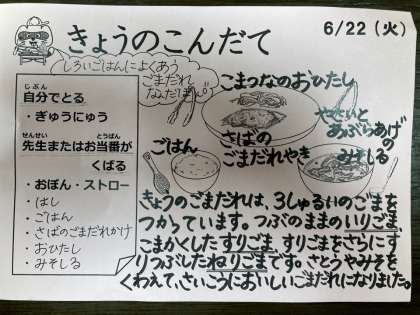 きょうのこんだて
6/22（火）
しろいごはんによくあう
ごまだれ
なんだぽん
じぶん
自分でとる
・ぎゅうにゅう
せんせい とうばん
先生またはお当番が
くばる
・おぼん・ストロー
・はし
・ごはん
・さばのごまだれかけ
・おひたし
・みそしる
こまつなのおひたし
さばの
ごまだれやき
やさいと
あぶらあげ
の
みそしる
ごはん
きょうのごまだれは、3しゅるいのごまを
つかっています。つぶのままのいりごま、
こまかくしたすりごま、すりごまをさらにす
りつぶしたねりごまです。さとうやみそを
くわえて、さいこうにおいしいごまだれになりました。